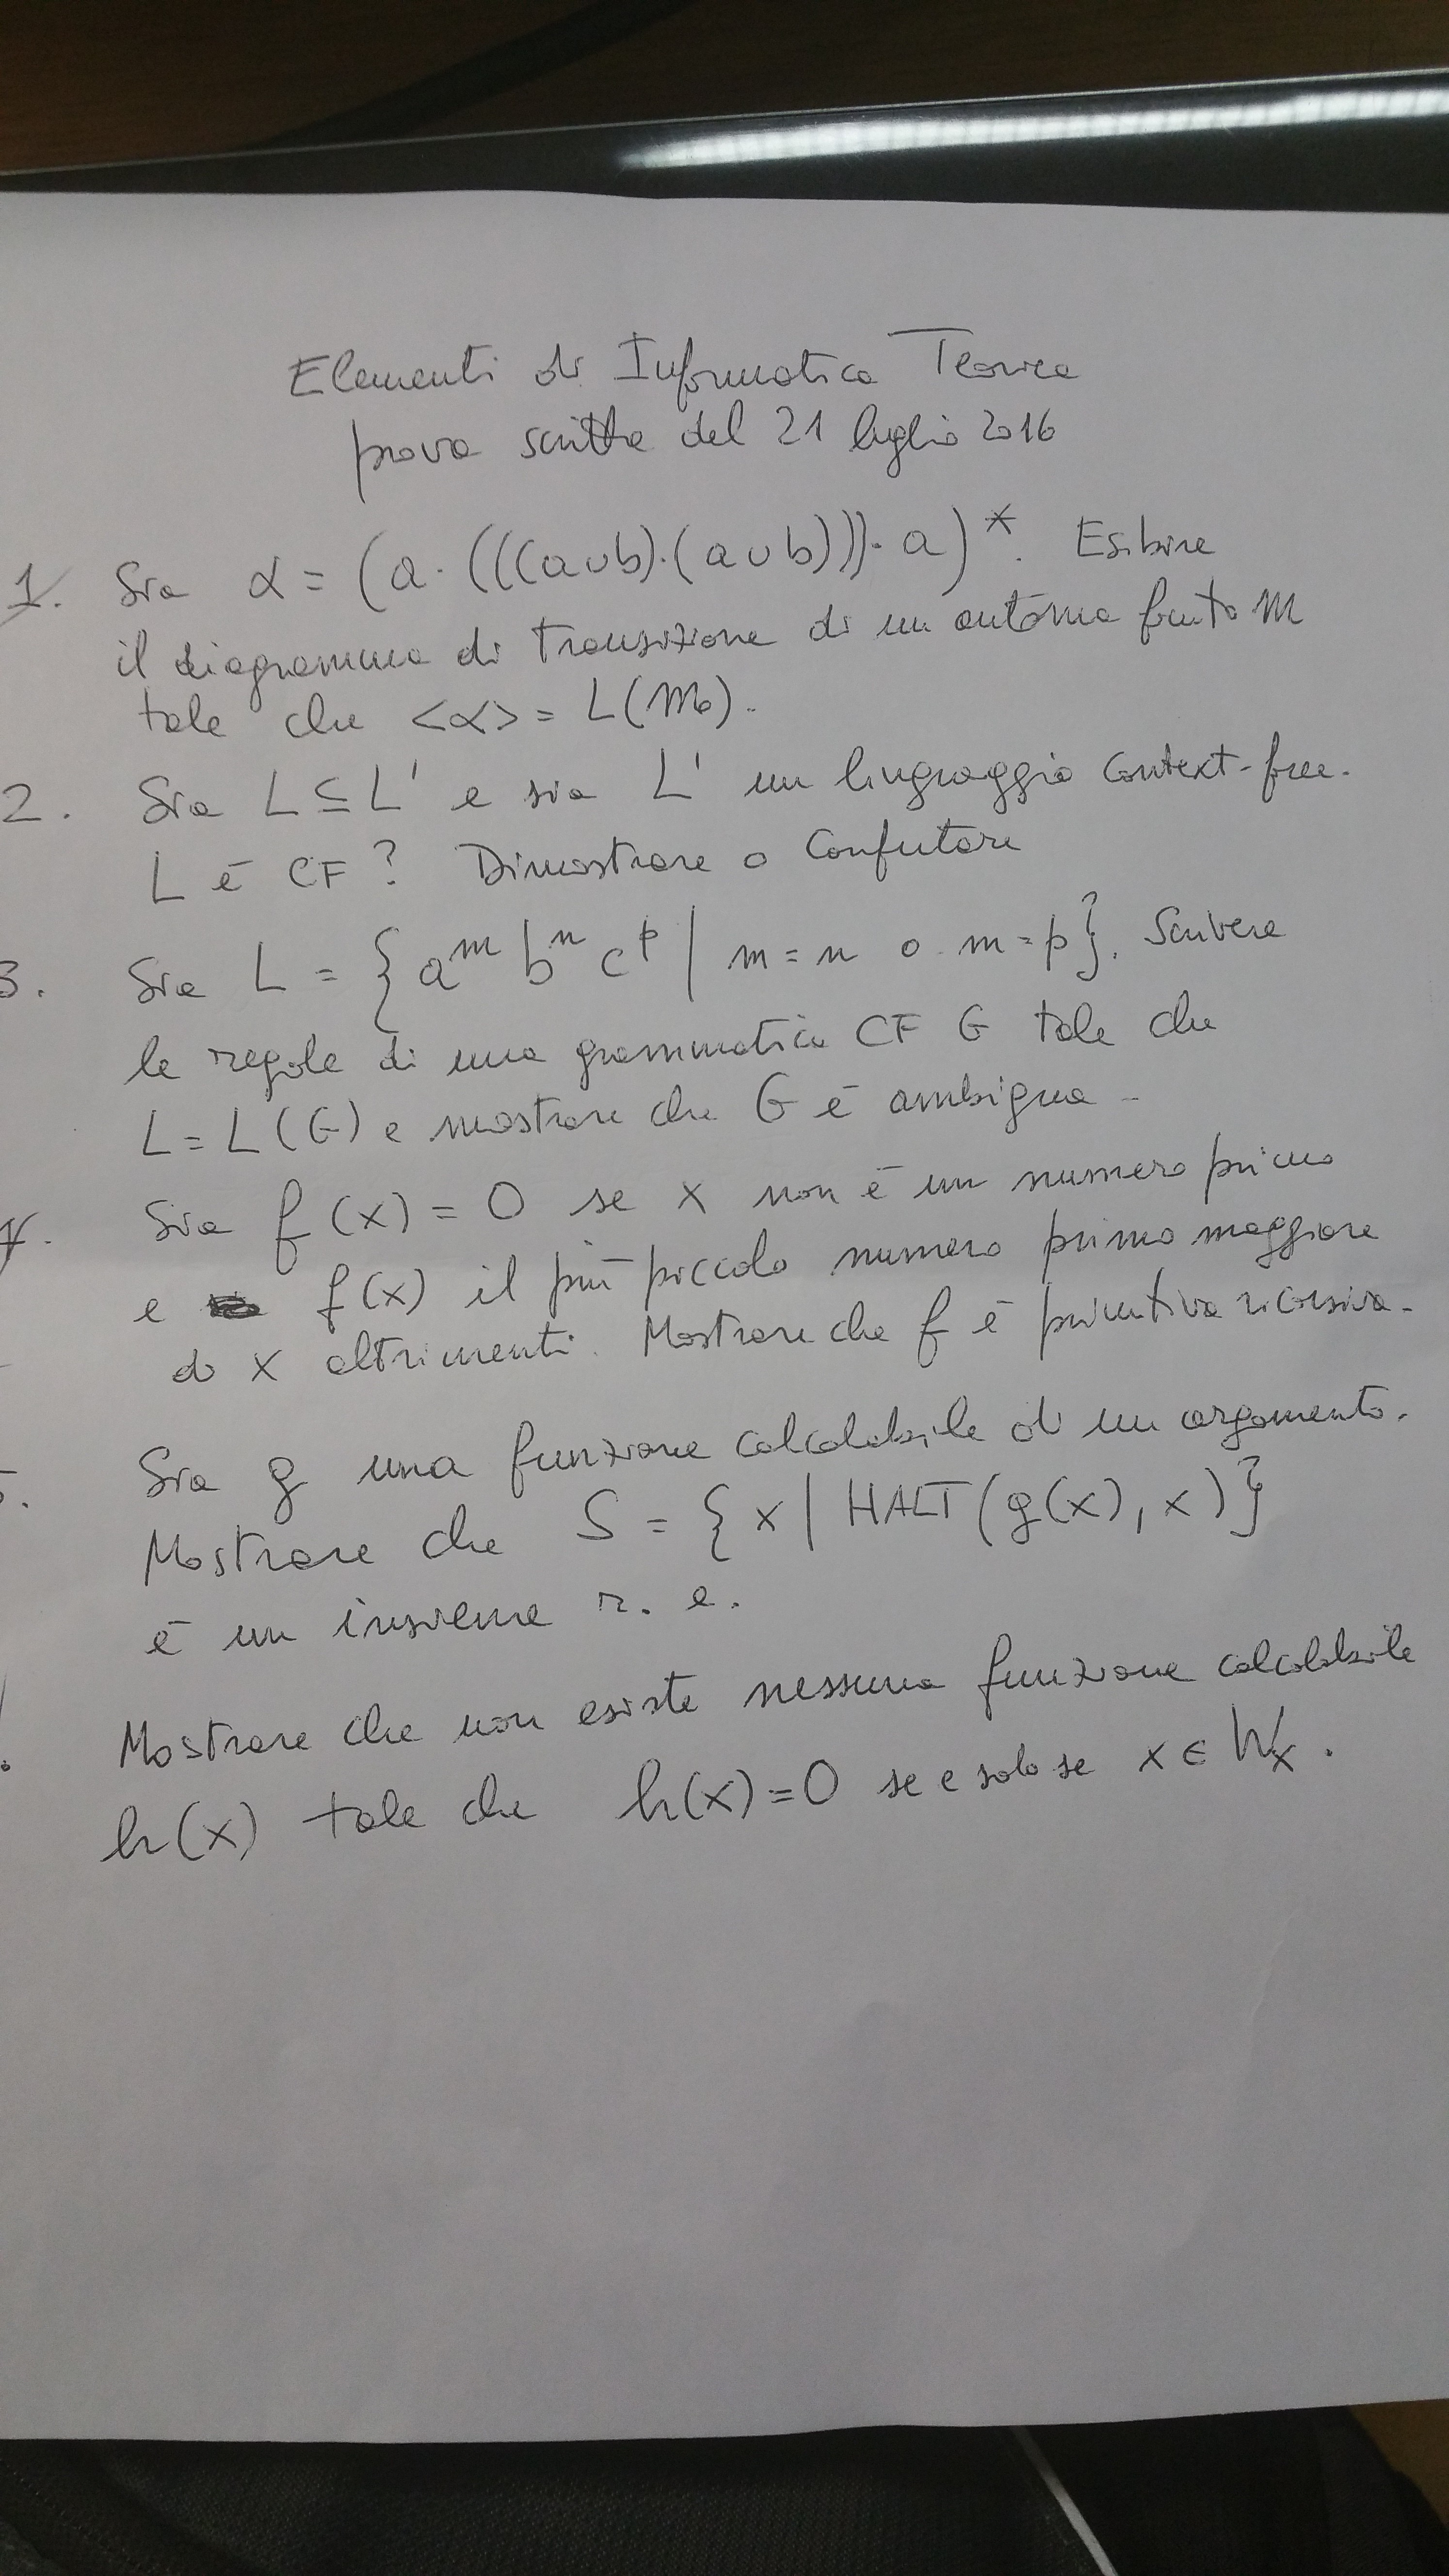 Elementi di Informatica Teorica
prova scritta del 21 luglio 2016
1. Sia α = (a·(((a∪b)·(a∪b)))·a)*. Esibire
il diagramma di transizione di un automa finito M
tale che <α> = L(M).
2. Sia L ⊆ L' e sia L' un linguaggio context-free.
L è CF? Dimostrare o Confutare
3. Sia L = {a^m b^n c^p | m = n o m = p}. Scrivere
le regole di una grammatica CF G tale che
L = L(G) e mostrare che G è ambigua.
4. Sia f(x) = 0 se x non è un numero primo
e f(x) il più piccolo numero primo maggiore
di x altrimenti. Mostrare che f è primitiva ricorsiva.
5. Sia g una funzione calcolabile di un argomento.
Mostrare che S = {x | HALT(g(x), x)}
è un insieme r. e.
Mostrare che non esiste nessuna funzione calcolabile
h(x) tale che h(x) = 0 se e solo se x ∈ Wx.